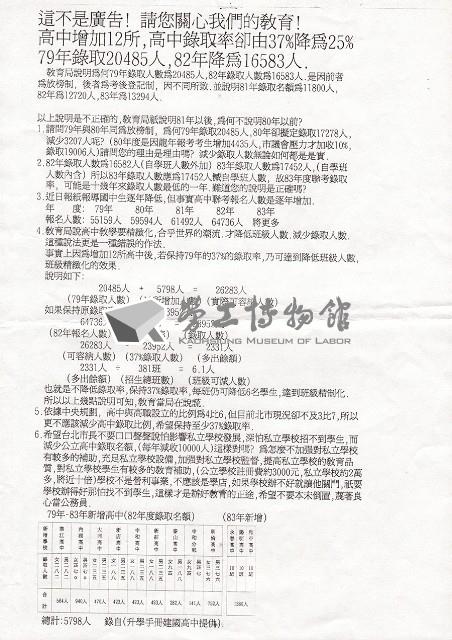 這不是廣告！請您關心我們的教育！
高中增加12所,高中錄取率卻由37%降為25%
79年錄取20485人,82年降為16583人.
教育局說明為何79年錄取人數為20485人,82年錄取人數為16583人.是因前者
為放榜制,後者為考後登記制,因不同所致.並說明81年錄取名額為11800人,
82年為12720人,83年為13294人.
以上說明是不正確的,教育局祇說明81年以後,為何不說明80年以前?
1.請問79年與80年同為放榜制,為何79年錄取20485人,80年卻擬定錄取17278人,
減少3207人呢?(80年度是因龍年報考考生增加4435人,市議會壓力才加收10%,
錄取19006人)請問您的理由是理由嗎?減少錄取人數無論如何都是是實.
2.82年錄取人數為16582人(自學班人數外加)83年錄取人數為17452人,(自學班
人數內含)所以83年錄取人數應為17452人減自學班人數,故83年度聯考錄取
率,可能是十幾年來錄取人數最低的一年.難道您的說明是正確嗎?
3.近日報紙報導國中生逐年降低,但事實高中聯考報名人數是逐年增加.
年 度: 79年 80年 81年 82年 83年
報名人數: 55159人 59594人 61492人 64736人 將更多
4.教育局說高中教學要精緻化,合乎世界的潮流.才降低班級人數.減少錄取人數.
這種說法更是一種錯誤的作法.
事實上因為增加12所高中後,若保持79年的37%的錄取率,乃可達到降低班級人數,
班級精緻化的效果.
說明如下:
20485人 + 5798人 = 26283人
(79年錄取人數)
如果保持原錄取
64736人
(82年報名人數)
26283人 - 23952人 = 2331人
(可容納人數) (37%錄取人數) (多出餘額)
2331人 ÷ 381班 = 6.1人
(多出餘額) (招生總班數) (班級可減人數)
也就是不降低錄取率,保持37%錄取率,每班仍可降低6名學生,達到班級精制化.
所以以上幾點說明可知,教育當局在說謊.
5.依據中央規劃,高中與高職設立的比例為4比6,但目前北市現況卻不及3比7,所以
更不應該減少高中錄取比例,希望保持至少37%錄取率.
6.希望台北市長不要口口聲聲說怕影響私立學校發展,深怕私立學校招不到學生,而
減少公立高中錄取名額,(每年減收10000人)這樣對嗎?為怎麼不加強對私立學校
有較多的補助,充足私立學校設備,加強對私立學校監督,提高私立學校的教育品
質,對私立學校學生有較多的教育補助,(公立學校註冊費約3000元,私立學校約2萬
多,將近十倍)學校不是營利事業,不應該是學店,如果學校辦不好就讓他關門,祇要
學校辦得好那怕找不到學生,這樣才是辦好教育的正途,希望不要本末倒置,蔑著良
心當公務員.
79年-83年新增高中(82年度錄取名額) (83年新增)
總計:5798人 錄自(升學手冊建國高中提供)
勞工博物館
KAOHSIUNG MUSEUM OF LABOR